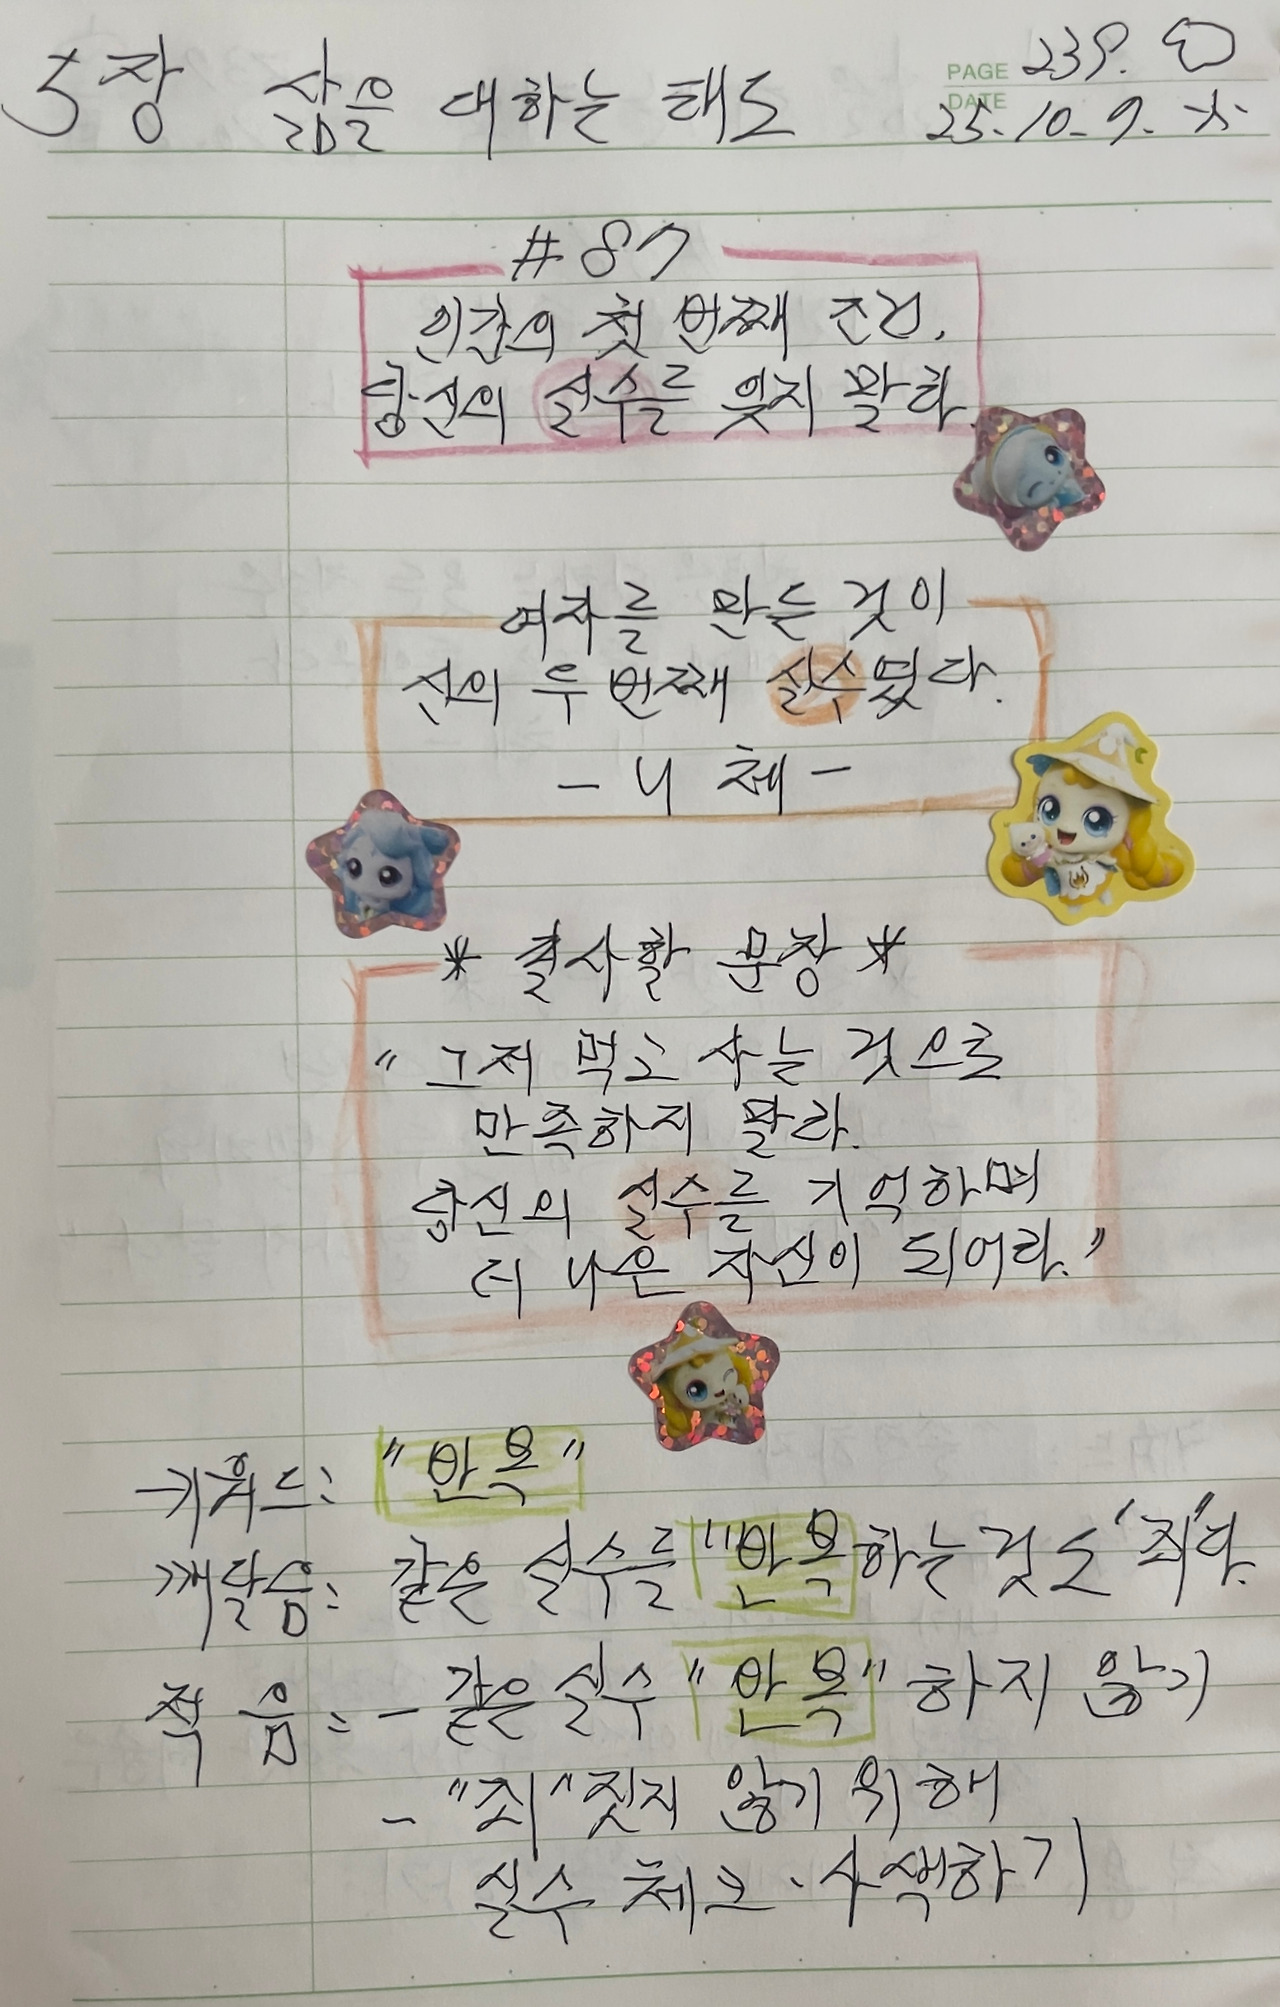 5장 삶을 대하는 태도
PAGE 239.
DATE 25. 10. 9. 木.
#87
인간의 첫 번째 조건,
당신의 실수를 잊지 말라.
여자를 만든 것이
신의 두 번째 실수였다.
- 니체 -
* 필사할 문장 *
"그저 먹고 사는 것으로
만족하지 말라.
당신의 실수를 기억하며
더 나은 자신이 되어라."
키워드: "반복"
깨달음: 같은 실수를 "반복하는 것도 '죄'다.
적용: - 같은 실수 "반복" 하지 않기
- "죄" 짓지 않기 위해
실수 체크·사색하기